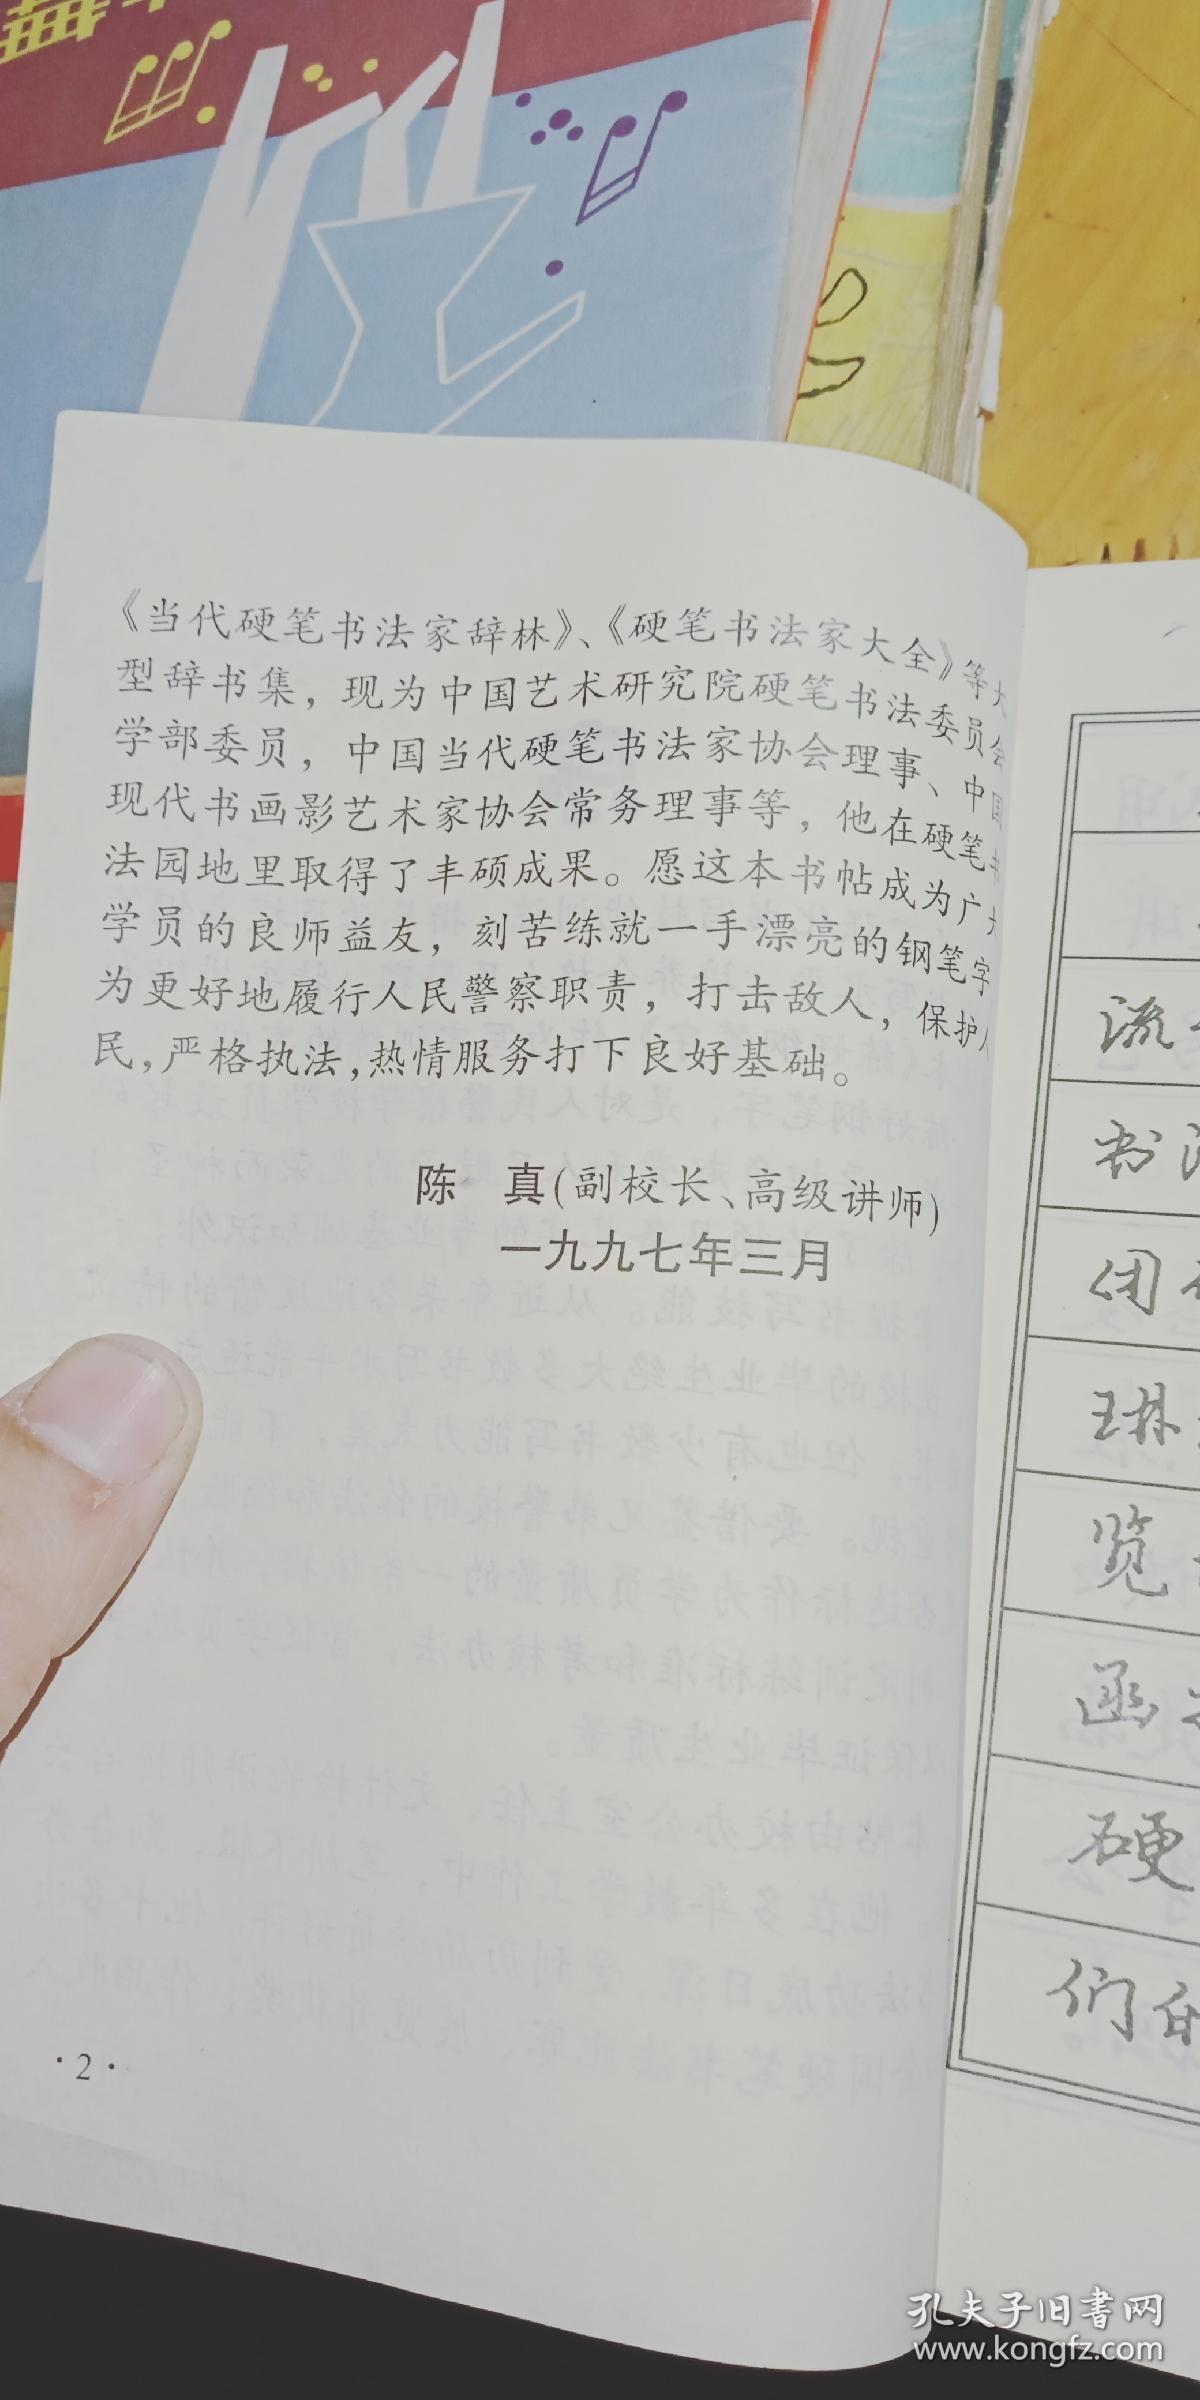 《当代硬笔书法家辞林》、《硬笔书法家大全》等大
型辞书集，现为中国艺术研究院硬笔书法委员会
学部委员，中国当代硬笔书法家协会理事、中国
现代书画影艺术家协会常务理事等，他在硬笔书
法园地里取得了丰硕成果。愿这本书帖成为广大
学员的良师益友，刻苦练就一手漂亮的钢笔字
为更好地履行人民警察职责，打击敌人，保护人
民，严格执法，热情服务打下良好基础。
陈　真(副校长、高级讲师)
一九九七年三月
·2·
流
书法
闭
琳
览
函
硬
们的
孔夫子旧書网
www.kongfz.com